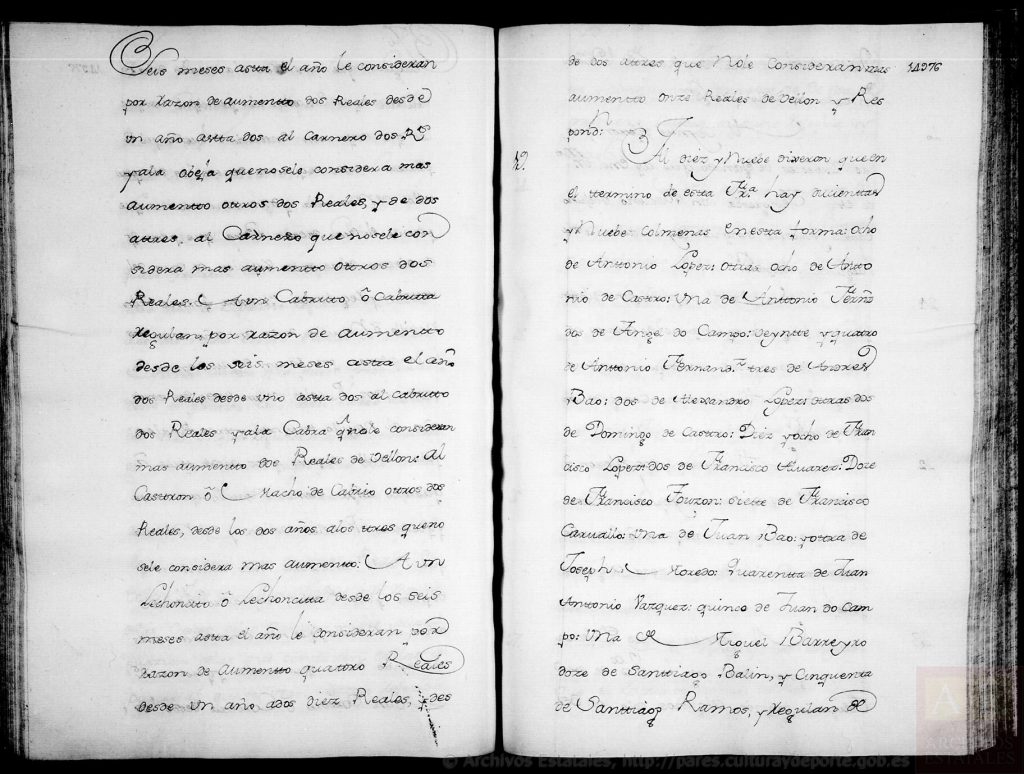 Seis meses astta el año le consideran
por razon de aumentto dos Reales desde
un año astta dos al Carnero dos R.s
y ala obeja que nosele considera mas
aumentto ottros dos Reales, y de dos
attres, al Carnero que nosele con
sidera mas aumentto ottros dos
Reales: Aun Cabritto, ô Cabritta
regulan, por razon de aumentto
desde los seis meses astta el año
dos Reales desde uno astta dos al Cabritto
dos Reales y ala Cabra q.e nole consideran
mas aumentto dos Reales de Vellon: Al
Castron ô Macho de Cabrio ottros dos
Reales, desde los dos años alos ttres queno
sele considera mas aumentto: Aun
Lechoncito ô Lechoncitta desde los seis
meses astta el año le consideran por
razon de aumentto quattro Reales
desde un año ados diez Reales, y des
de dos attres que Nole Consideran mas
aumentto onze Reales de Vellon y Res
pond:
19. Al diez y Nuebe dixeron que en
el ttermino de estta fr.a hay ducienttas
y Nuebe Colmenas en estta forma: ocho
de Anttonio Lopez: ottras ocho de Antto
nio de Castro: Una de Anttonio Fern.z
dos de Angel do Campo: Veyntte y quattro
de Anttonio Fernand.z ttres de Andres
Bao: dos de Alexandro Lopez: ottras dos
de Domingo de Casttro: Diez y ocho de Fran
cisco Lopez: dos de Francisco Alvarez: Doze
de Francisco Touzon: siette de Francisco
Carvallo: Una de Juan Bao: y ottra de
Joseph Moredo: Quarentta de Juan
Antonio Vazquez: quince de Juan do Cam
po: Una de Miguel Barreyro
doze de Santtiago Balin, y Cinquenta
de Santtiago Ramos, y regulan de
© Archivos Estatales, http://pares.culturaydeporte.gob.es
ARCHIVOS
ESTATALES